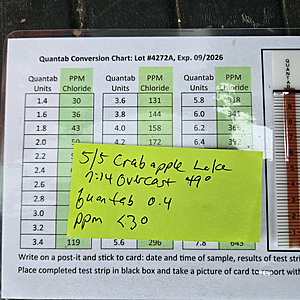 Quantab Conversion Chart: Lot #4272A, Exp. 09/2026
Quantab Units PPM Chloride Quantab Units PPM Chloride Quantab Units PPM Chloride
1.4 30 3.6 131 5.8 318
1.6 36 3.8 144 6.0 341
1.8 43 4.0 158 6.2 366
2.0 4.2 172
2.2
3.0
3.2
3.4 119 5.6 296 7.8 643
5/5 Crabapple Lake
7:14 Overcast 49°
Quantab 0.4
ppm <30
Write on a post-it and stick to card: date and time of sample, results of test
Place completed test strip in black box and take a picture of card to report with
QUANTAB